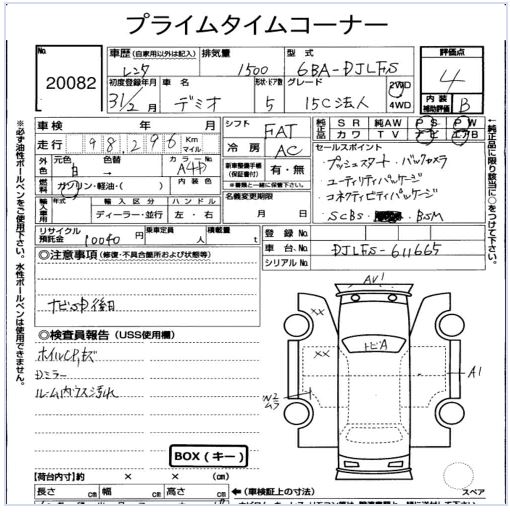 プライムタイムコーナー
No.
20082
車歴 (自家用以外は記入) 排気量 型式
レンタ 1500 6BA-DJLFS
初度登録年月 車名 形状・ドア数 グレード
31/2月 デミオ 5 15C法人
2WD
4WD
評価点
4
内装
補助評価 B
車検 年 月
シフト FAT
純正品 SR 純AW PS PW
カワ TV ナビ エアB
走行 98,296 Km マイル
冷房 AC
セールスポイント
・プッシュスタート・バックカメラ
・ユーティリティパッケージ
・コネクティビティパッケージ
・SCBS・ ・BSM
外色 元色 色替 カラーNo
白 → A4D
新車整備手帳
(保証書付) 有・無
燃料 ガソリン・軽油・( ) 内装色
※書類と一緒に保管下さい。
輸入車用 年式 輸入区分 ハンドル
ディーラー・並行 左・右
名義変更期限
月 日
リサイクル
預託金 10040円
乗車定員 人
積載量 t
登録No
車台No. DJLFS-611665
シリアルNo
◎注意事項 (修復・不具合箇所および状態等)
ナビSD後日
◎検査員報告 (USS使用欄)
ホイルCPキズ
Dミラー
ルーム内ウス汚れ
BOX(キー)
AV1
××
××
トビA
A1
W2
ムラ
スペア
【荷台内寸】約 × ×
長さ cm 幅 cm 高さ cm
←(車検証上の寸法)
※必ず油性ボールペンをご使用下さい。水性ボールペンは使用できません。
↑純正品に限り該当に○をつけて下さい。